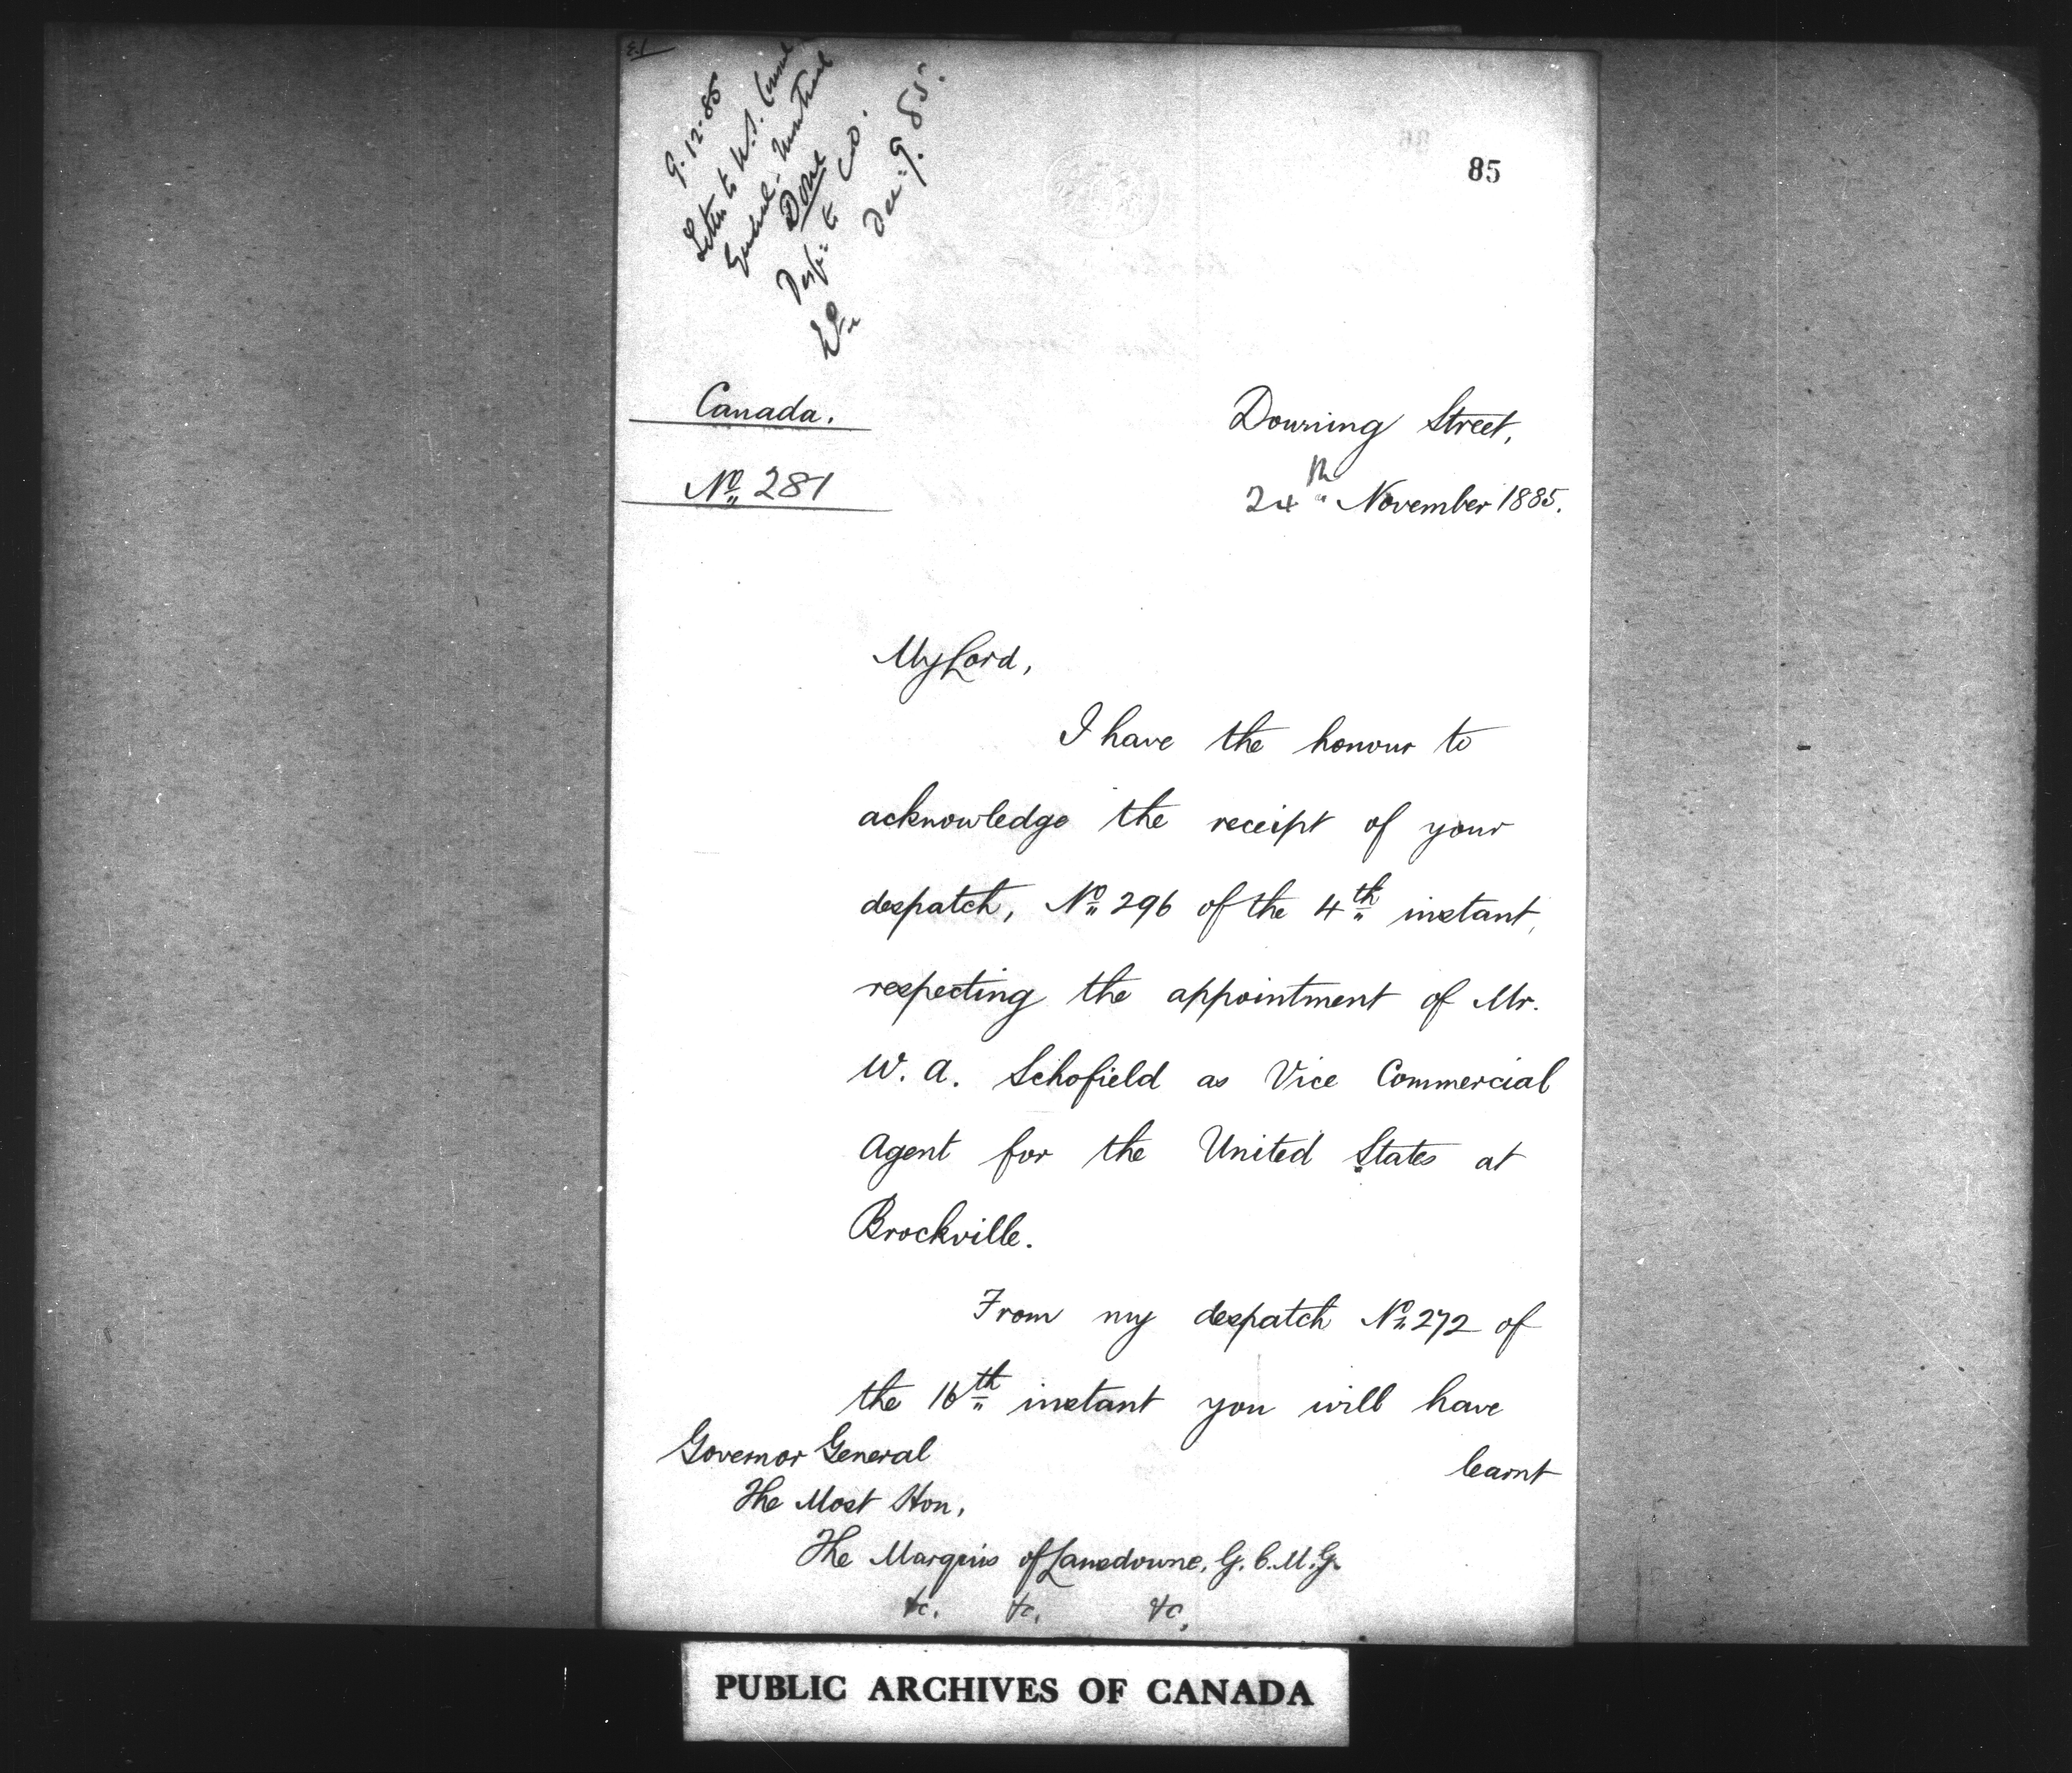 9.12.85
Letter to U.S. Consul
General. Montreal
Done
Desp: to C.O.
Dec: 9. 85.
85
Canada.
No. 281
Downing Street,
24th November 1885.
My Lord,
I have the honour to
acknowledge the receipt of your
despatch, No. 296 of the 4th instant,
respecting the appointment of Mr.
W. A. Schofield as Vice Commercial
Agent for the United States at
Brockville.
From my despatch No. 272 of
the 16th instant you will have
learnt
Governor General
The Most Hon,
The Marquis of Lansdowne, G.C.M.G.
&c. &c. &c.
PUBLIC ARCHIVES OF CANADA